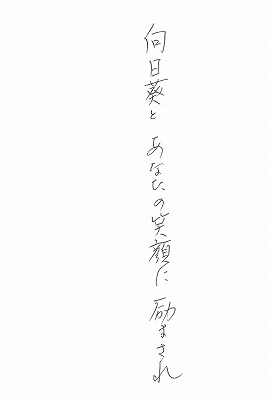 向日葵と あなたの笑顔に 励まされ